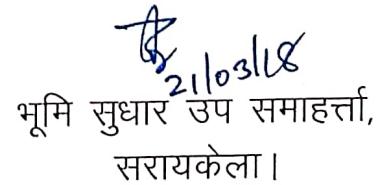 21/03/18
भूमि सुधार उप समाहर्त्ता,
सरायकेला।